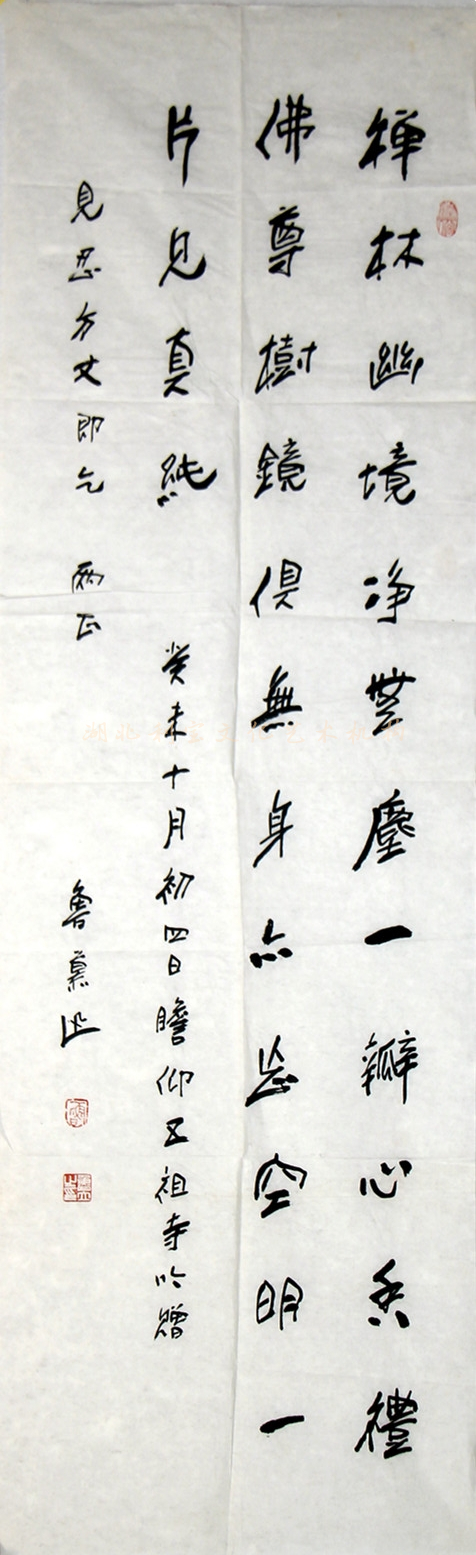 禪林幽境净無塵一瓣心香禮
佛尊樹鏡俱無身亦忘空明一
片見真純 癸未十月初四日瞻仰五祖寺吟贈
見忍方丈即乞 兩正 魯慕迅